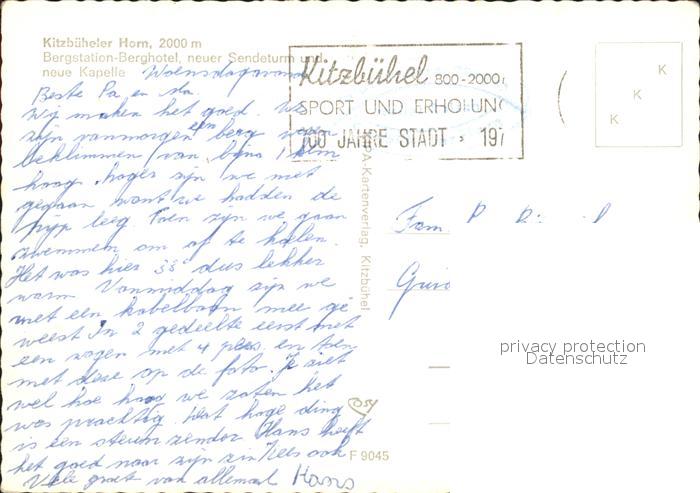 Kitzbüheler Horn, 2000 m
Bergstation-Berghotel, neuer Sendeturm und
neue Kapelle
Woensdagavond
Beste Pa en Ma.
Wij maken het goed. We
zijn vanmorgen een berg wezen
beklimmen van bijna 1 klm
hoog, hoger zijn we niet
gegaan want we hadden de
pijp leeg. Toen zijn we gaan
zwemmen om af te koelen.
Het was hier 33° dus lekker
warm. Vanmiddag zijn we
met een kabelbaan mee ge
weest In 2 gedeelte eerst met
een wagen met 4 pers. en toen
met deze op de foto. Je ziet
wel hoe hoog we zaten het
was prachtig. Dat hoge ding
is een steunzender Hans heeft
het goed naar zijn zin Kees ook
Vele groet van allemaal Hans
Kitzbühel 800-2000
SPORT UND ERHOLUNG
700 JAHRE STADT 197
PA-Kartenverlag, Kitzbühel
F 9045
K
K
K
Fam
privacy protection
Datenschutz